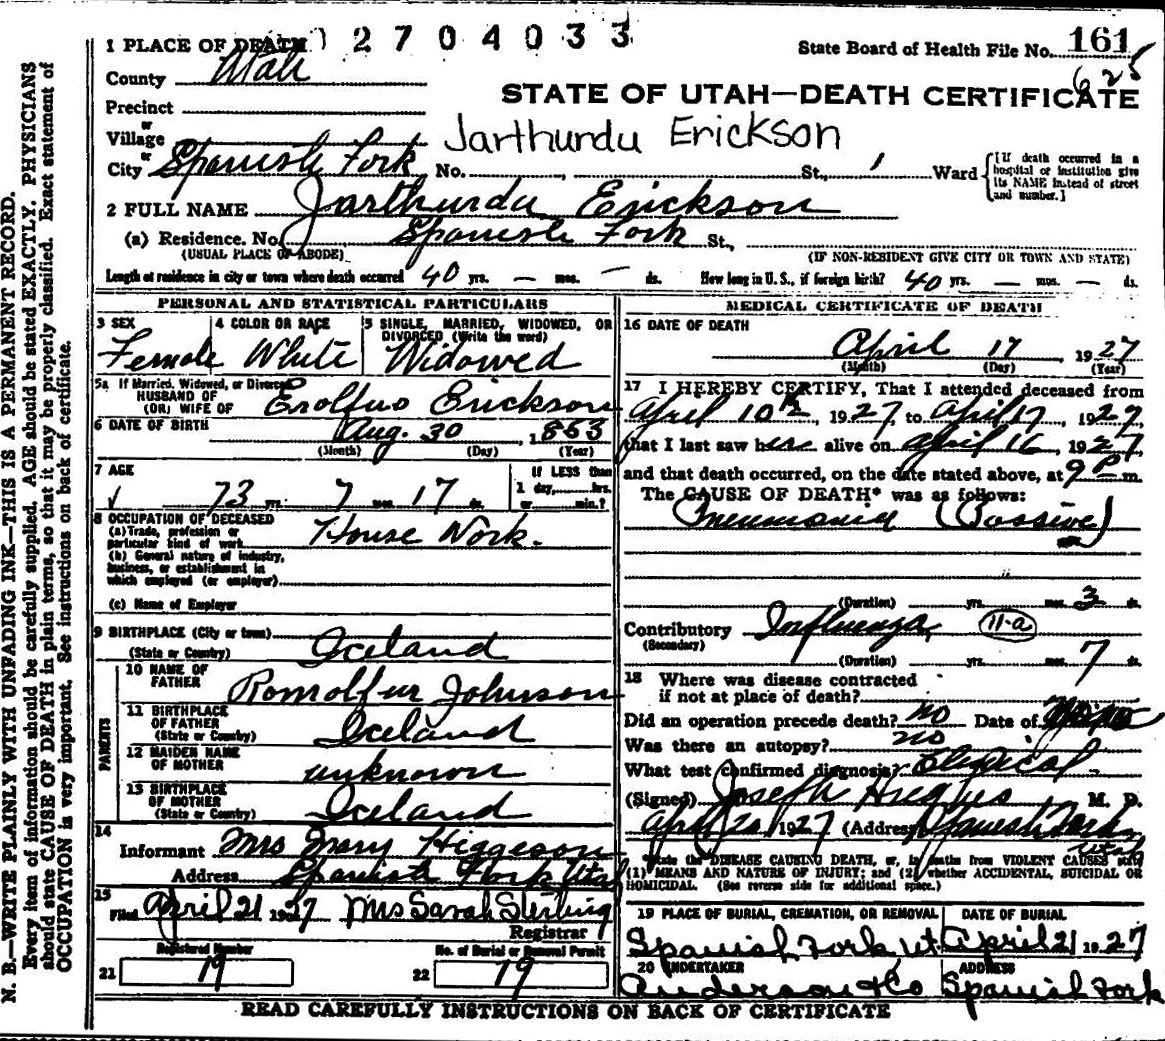 1 PLACE OF DEATH 2 7 0 4 0 3 3
State Board of Health File No. 161
625
County Utah
STATE OF UTAH—DEATH CERTIFICATE
Precinct
or
Village
Jarthurdu Erickson
or
City Spanish Fork No. , St., Ward
[If death occurred in a hospital or institution give its NAME instead of street and number.]
2 FULL NAME Jarthurdu Erickson
(a) Residence. No. Spanish Fork St.,
(USUAL PLACE OF ABODE) (IF NON-RESIDENT GIVE CITY OR TOWN AND STATE)
Length of residence in city or town where death occurred 40 yrs. — mos. — ds. How long in U. S., if foreign birth? 40 yrs. — mos. — ds.
PERSONAL AND STATISTICAL PARTICULARS
3 SEX 4 COLOR OR RACE 5 SINGLE, MARRIED, WIDOWED, OR
DIVORCED (Write the word)
Female White Widowed
5a If Married, Widowed, or Divorced
HUSBAND OF
(OR) WIFE OF Erolfuo Erickson
6 DATE OF BIRTH Aug. 30, 1863
(Month) (Day) (Year)
7 AGE If LESS than
1 day, hrs.
73 yrs. 7 mos. 17 ds. or min.?
8 OCCUPATION OF DECEASED
(a) Trade, profession or
particular kind of work House Work.
(b) General nature of industry,
business, or establishment in
which employed (or employer)
(c) Name of Employer
9 BIRTHPLACE (City or town)
(State or Country) Iceland
PARENTS
10 NAME OF
FATHER Romolfur Johnson
11 BIRTHPLACE
OF FATHER
(State or Country) Iceland
12 MAIDEN NAME
OF MOTHER unknown
13 BIRTHPLACE
OF MOTHER
(State or Country) Iceland
14
Informant Mrs Mary Higgeson
Address Spanish Fork Utah
15
Filed April 21 1927 Mrs Sarah Sterling
Registrar
Registered Number No. of Burial or Removal Permit
21 19 22 19
MEDICAL CERTIFICATE OF DEATH
16 DATE OF DEATH
April 17, 1927
(Month) (Day) (Year)
17 I HEREBY CERTIFY, That I attended deceased from
April 10th, 1927, to April 17, 1927,
that I last saw her alive on April 16, 1927,
and that death occurred, on the date stated above, at 9 P m.
The CAUSE OF DEATH* was as follows:
Pneumonia (Passive)
(Duration) yrs. mos. 3 ds.
Contributory Influenza 11-a
(Secondary)
(Duration) yrs. mos. 7 ds.
18 Where was disease contracted
if not at place of death?
Did an operation precede death? no Date of
Was there an autopsy? no
What test confirmed diagnosis? Clinical
(Signed) Joseph Hughes M. D.
April 20, 1927 (Address) Spanish Fork
Utah
*State the DISEASE CAUSING DEATH, or, in deaths from VIOLENT CAUSES state
(1) MEANS AND NATURE OF INJURY; and (2) whether ACCIDENTAL, SUICIDAL OR
HOMICIDAL. (See reverse side for additional space.)
19 PLACE OF BURIAL, CREMATION, OR REMOVAL DATE OF BURIAL
Spanish Fork Ut. April 21 1927
20 UNDERTAKER ADDRESS
Anderson & Co Spanish Fork
READ CAREFULLY INSTRUCTIONS ON BACK OF CERTIFICATE
N. B.—WRITE PLAINLY WITH UNFADING INK—THIS IS A PERMANENT RECORD.
Every item of information should be carefully supplied. AGE should be stated EXACTLY. PHYSICIANS
should state CAUSE OF DEATH in plain terms, so that it may be properly classified. Exact statement of
OCCUPATION is very important. See instructions on back of certificate.